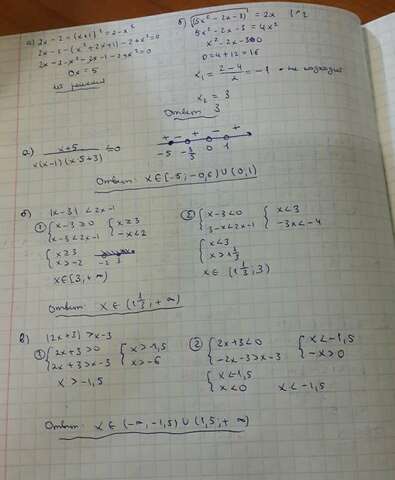 а) 2x-2-(x+1)² = 2-x²
2x-2-(x²+2x+1)-2+x²=0
2x-2-x²-2x-1-2+x²=0
0x=5
нет решений
б) √(5x²-2x-3) = 2x |↑2
5x²-2x-3 = 4x²
x²-2x-3=0
D=4+12=16
x₁ = (2-4)/2 = -1 - не подходит
x₂ = 3
Ответ: 3
а) (x+5)/(x(x-1)(x·5+3)) ≤0
+ - + - +
-5 -3/5 0 1
Ответ: x∈[-5; -0,6)∪(0,1)
б) |x-3| < 2x-1
① {x-3≥0 {x≥3
{x-3<2x-1 {-x<2
{x≥3
{x>-2 -2 3
x∈[3,+∞)
② {x-3<0 {x<3
{3-x<2x-1 {-3x<-4
{x<3
{x>1 1/3
x∈ (1 1/3; 3)
Ответ: x∈ (1 1/3; +∞)
в) |2x+3| > x-3
① {2x+3>0 {x>-1,5
{2x+3>x-3 {x>-6
x>-1,5
② {2x+3<0 {x<-1,5
{-2x-3>x-3 {-x>0
{x<-1,5
{x<0 x<-1,5
Ответ: x∈ (-∞, -1,5) ∪ (1,5; +∞)